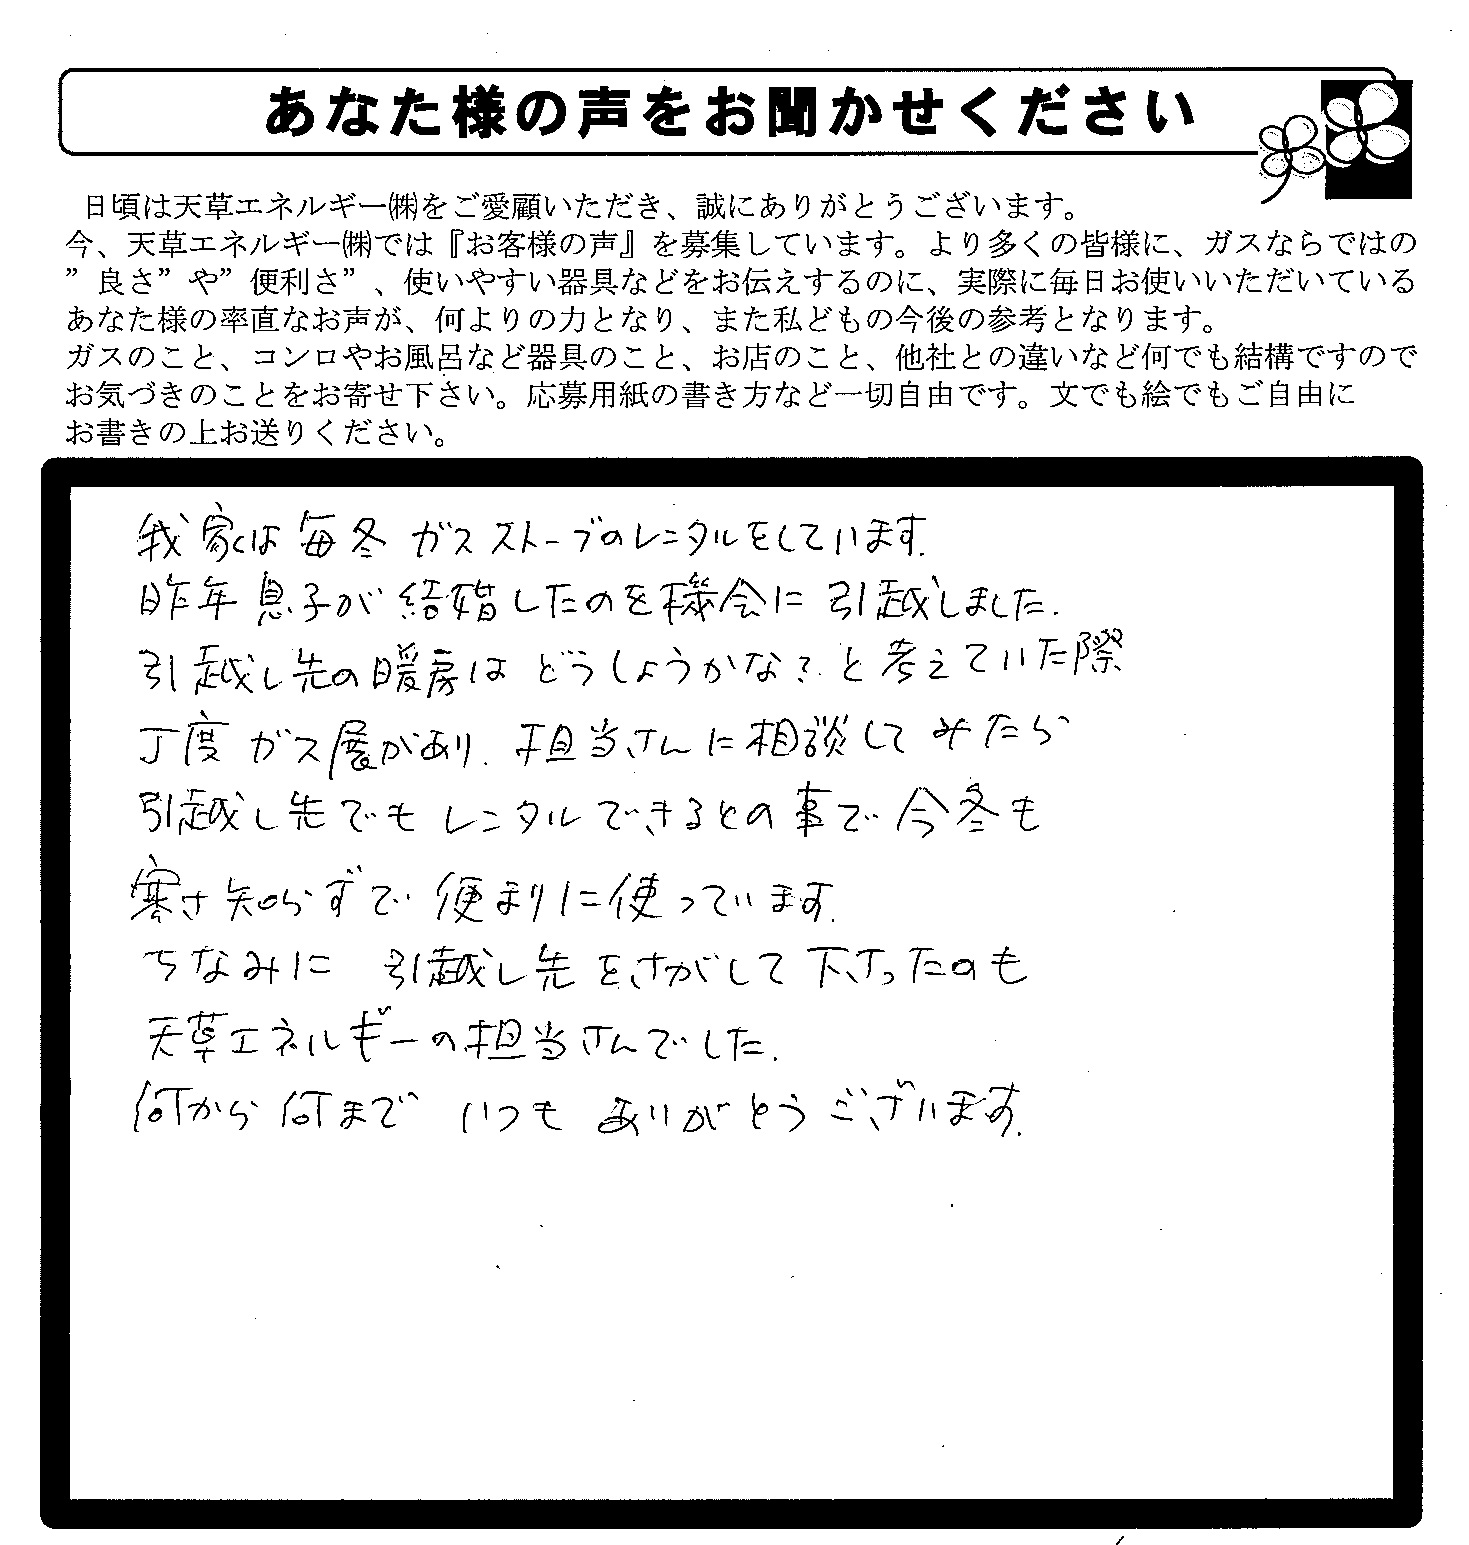 あなた様の声をお聞かせください
日頃は天草エネルギー㈱をご愛顧いただき、誠にありがとうございます。
今、天草エネルギー㈱では『お客様の声』を募集しています。より多くの皆様に、ガスならではの
”良さ”や”便利さ”、使いやすい器具などをお伝えするのに、実際に毎日お使いいただいている
あなた様の率直なお声が、何よりの力となり、また私どもの今後の参考となります。
ガスのこと、コンロやお風呂など器具のこと、お店のこと、他社との違いなど何でも結構ですので
お気づきのことをお寄せ下さい。応募用紙の書き方など一切自由です。文でも絵でもご自由に
お書きの上お送りください。
我家は毎冬ガスストーブのレンタルをしています。
昨年息子が結婚したのを機会に引越しました。
引越し先の暖房はどうしようかな?と考えていた際
丁度ガス展があり、担当さんに相談してみたら
引越し先でもレンタルできるとの事で今冬も
寒さ知らずで便まりに使っています。
ちなみに 引越し先をさがして下さったのも
天草エネルギーの担当さんでした。
何から何まで いつも ありがとうございます。